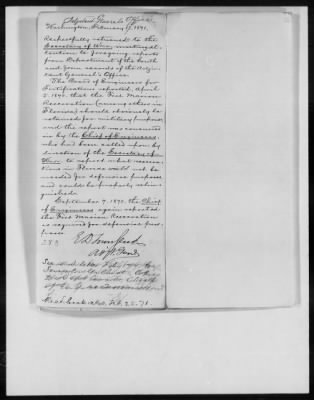 Adjutant General's Office
Washington, February 17, 1871.
Respectfully returned to the
Secretary of War, inviting at-
tention to foregoing reports
from Department of the South
and from records of the Adju-
tant General's Office.
The Board of Engineers for
Fortifications reported, April
5, 1870, that the Fort Marion
Reservation (among others in
Florida) should obviously be
retained for military purposes,
and the report was concurred
in by the Chief of Engineers,
who had been called upon by
direction of the Secretary of
War to report what reserva-
tions in Florida would not be
needed for defensive purposes
and could be properly relin-
quished.
September 9, 1870, the Chief
of Engineers again reported
the Fort Marion Reservation
is required for defensive pur-
poses.
E. D. Townsend
Adjt. Genl.